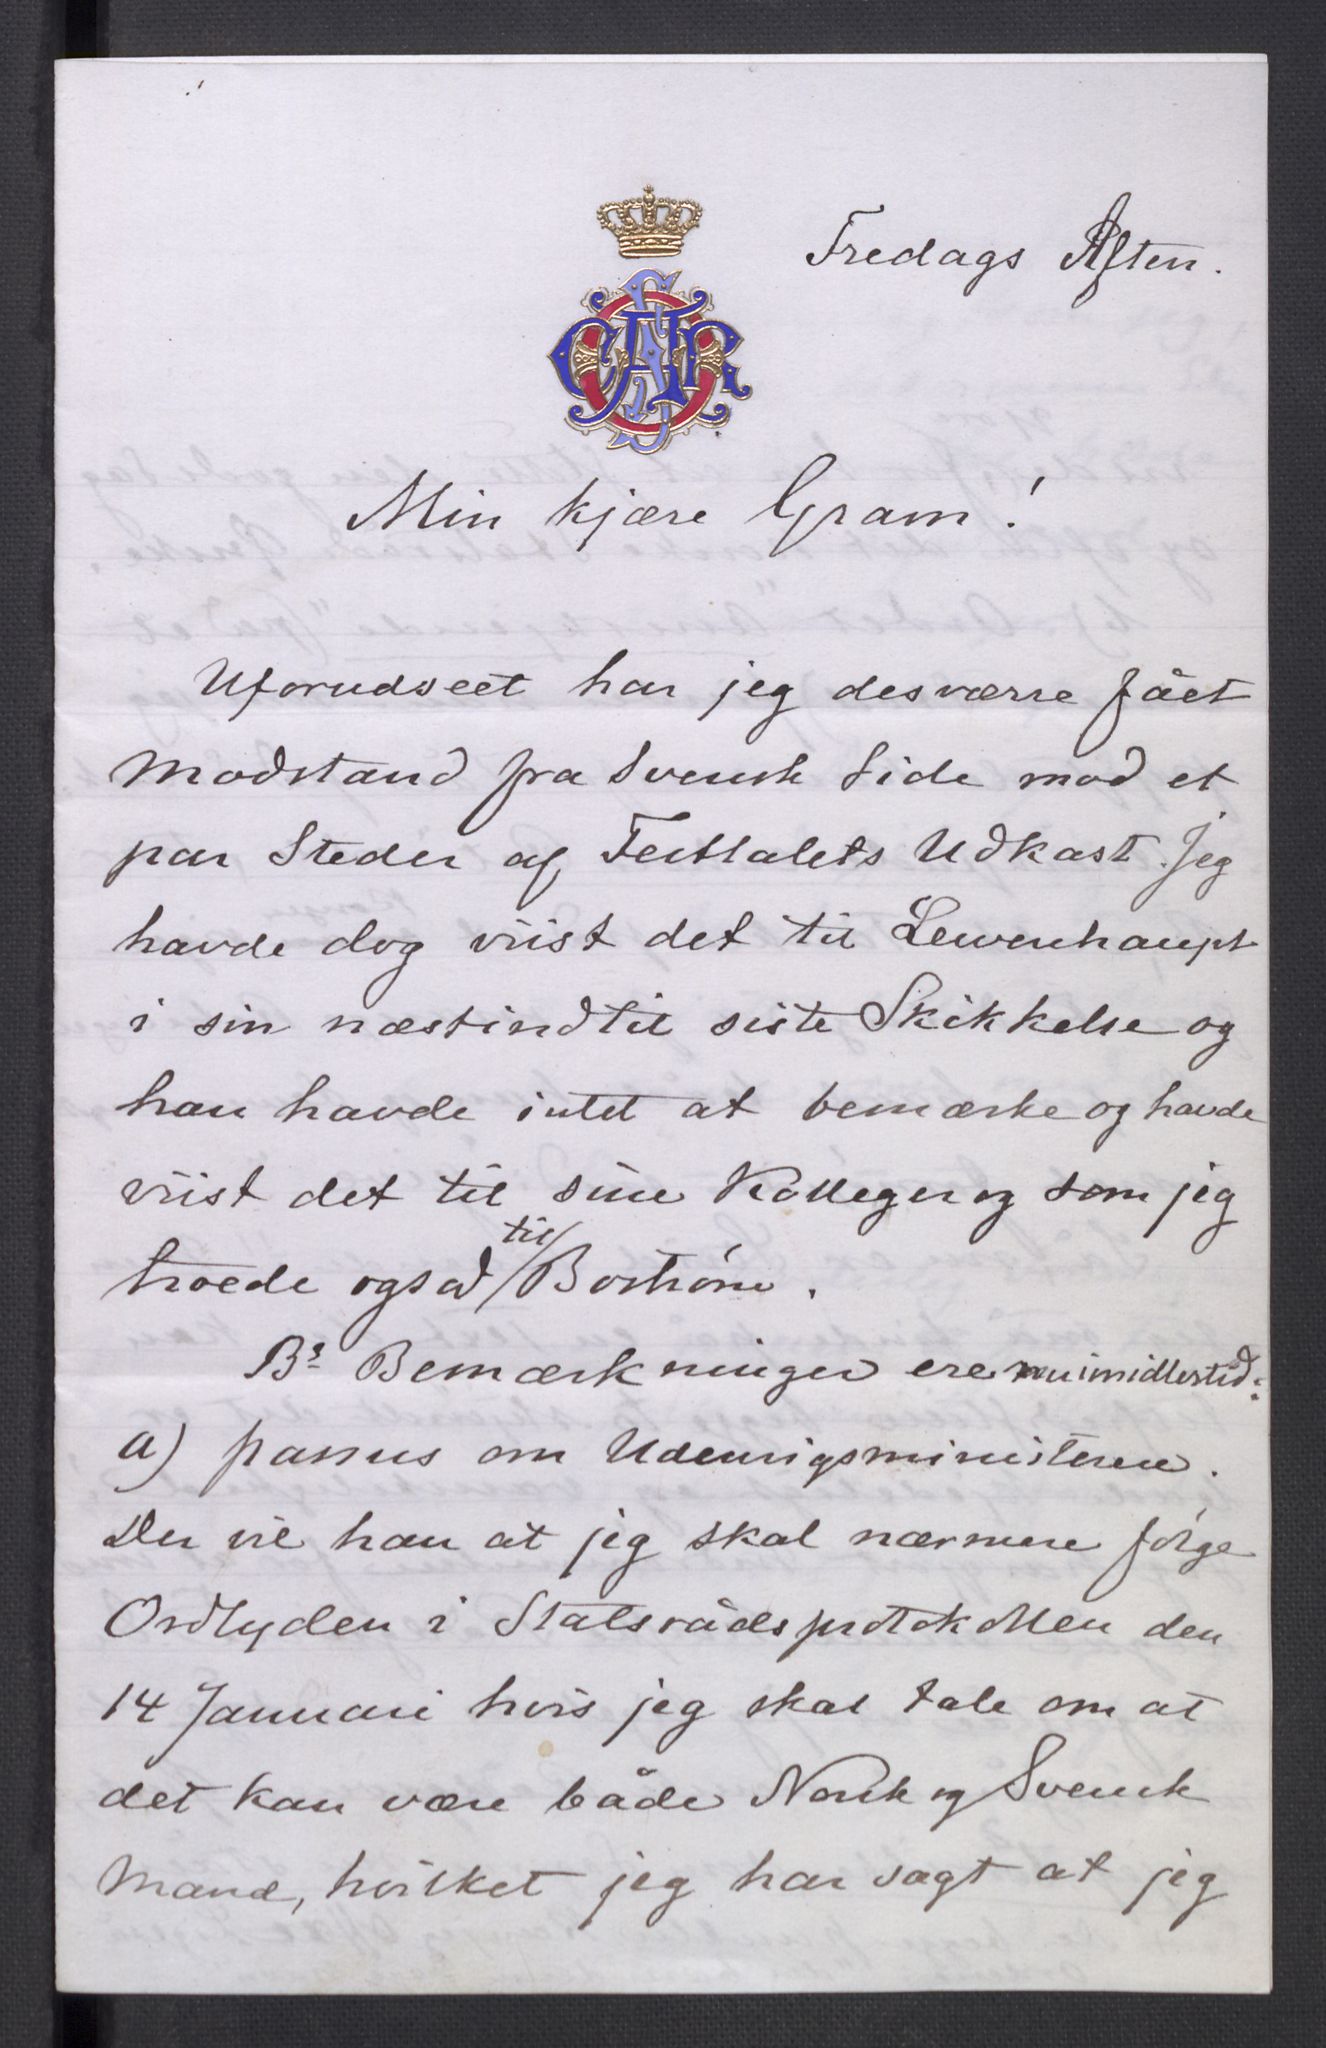 Fredags Aften.
Min kjære Gram!
Uforudseet har jeg desværre fået
Modstand fra Svensk Side mod et
par Steder af Festtalets Udkast. Jeg
havde dog viist det til Lewenhaupt
i sin næstindtil siste Skikkelse og
han havde intet at bemærke og havde
viist det til sine Kolleger og som jeg
troede også til Boström.
Bs Bemærkninger ere nu imidlertid:
a) passus om Udenrigsministeren.
Der vil han at jeg skal nærmere følge
Ordlyden i Statsrådsprotokollen den
14 Januari hvis jeg skal tale om at
det kan være både Norsk og Svensk
Mand, hvilket jeg har sagt at jeg